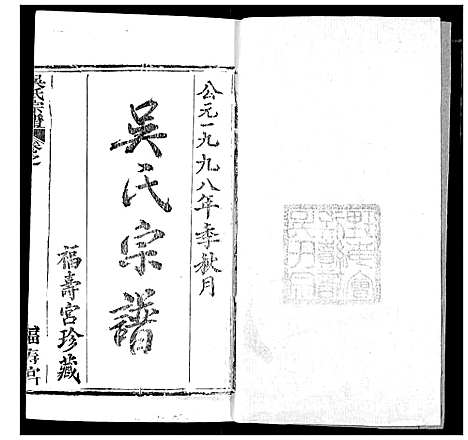 公元一九九八年季秋月
吴氏宗譜
福壽宮珍藏
吳氏宗譜
卷之
福壽宮